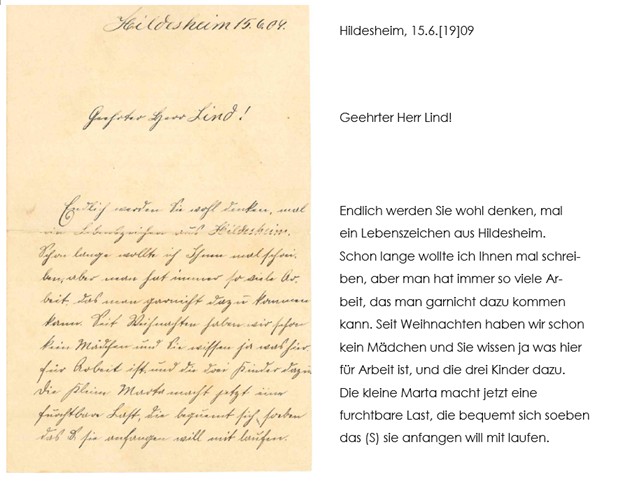 Hildesheim 15.6.09.
Geehrter Herr Lind!
Endlich werden Sie wohl denken, mal
ein Lebenszeichen aus Hildesheim.
Schon lange wollte ich Ihnen mal schrei-
ben, aber man hat immer so viele Ar-
beit das man garnicht dazu kommen
kann. Seit Weihnachten haben wir schon
kein Mädchen und Sie wissen ja was hier
für Arbeit ist und die drei Kinder dazu
Die kleine Marta macht jetzt eine
furchtbare Last, die bequemt sich soeben
das S. sie anfangen will mit laufen.
Hildesheim, 15.6.[19]09
Geehrter Herr Lind!
Endlich werden Sie wohl denken, mal
ein Lebenszeichen aus Hildesheim.
Schon lange wollte ich Ihnen mal schrei-
ben, aber man hat immer so viele Ar-
beit, das man garnicht dazu kommen
kann. Seit Weihnachten haben wir schon
kein Mädchen und Sie wissen ja was hier
für Arbeit ist, und die drei Kinder dazu.
Die kleine Marta macht jetzt eine
furchtbare Last, die bequemt sich soeben
das (S) sie anfangen will mit laufen.